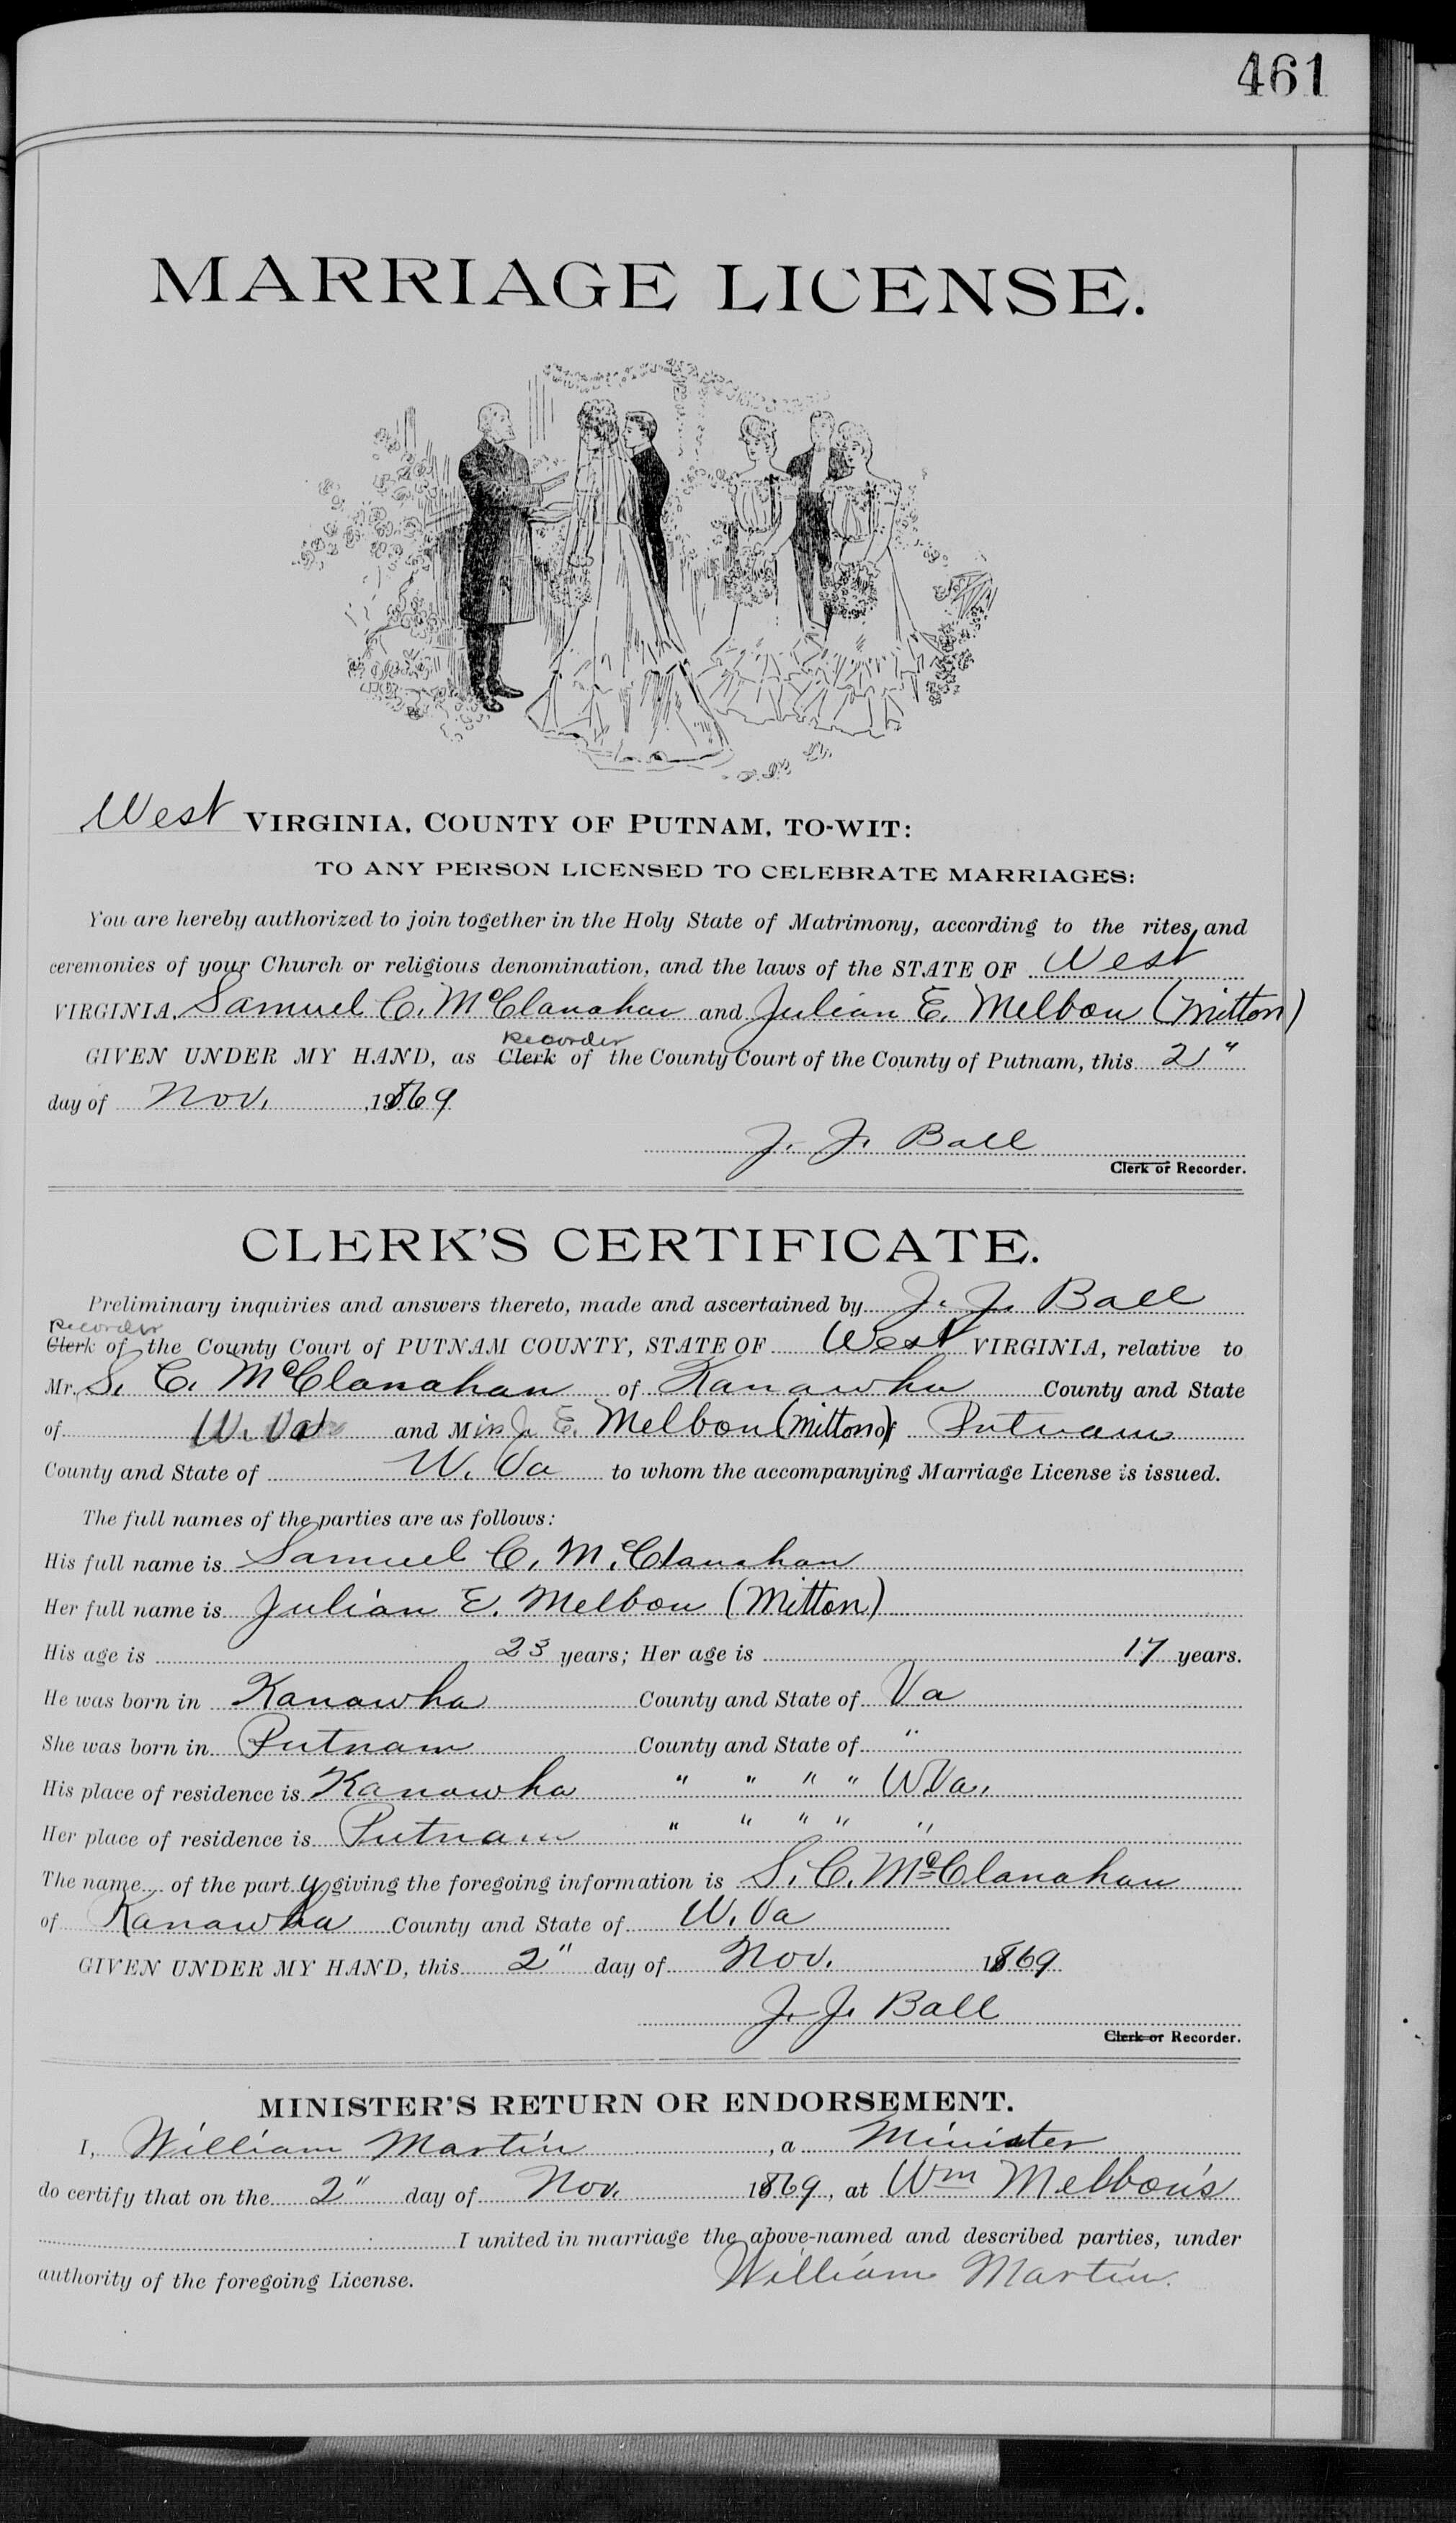 461
MARRIAGE LICENSE.
West VIRGINIA, COUNTY OF PUTNAM, TO-WIT:
TO ANY PERSON LICENSED TO CELEBRATE MARRIAGES:
You are hereby authorized to join together in the Holy State of Matrimony, according to the rites and
ceremonies of your Church or religious denomination, and the laws of the STATE OF West
VIRGINIA, Samuel C. McClanahan and Julian E. Melbon (Mitton)
Recorder
GIVEN UNDER MY HAND, as Clerk of the County Court of the County of Putnam, this 2"
day of Nov. 1869
J. J. Ball
Clerk or Recorder.
CLERK'S CERTIFICATE.
Preliminary inquiries and answers thereto, made and ascertained by J. J. Ball
Recorder
Clerk of the County Court of PUTNAM COUNTY, STATE OF West VIRGINIA, relative to
Mr. S. C. McClanahan of Kanawha County and State
of W. Va and Miss J. E. Melbon (Mitton) of Putnam
County and State of W. Va to whom the accompanying Marriage License is issued.
The full names of the parties are as follows:
His full name is Samuel C. McClanahan
Her full name is Julian E. Melbon (Mitton)
His age is 23 years; Her age is 17 years.
He was born in Kanawha County and State of Va
She was born in Putnam County and State of "
His place of residence is Kanawha " " " " W.Va.
Her place of residence is Putnam " " " " "
The name of the party giving the foregoing information is S. C. McClanahan
of Kanawha County and State of W. Va
GIVEN UNDER MY HAND, this 2" day of Nov. 1869
J. J. Ball
Clerk or Recorder.
MINISTER'S RETURN OR ENDORSEMENT.
I, William Martin, a Minister
do certify that on the 2" day of Nov. 1869, at Wm Melbon's
I united in marriage the above-named and described parties, under
authority of the foregoing License. William Martin.